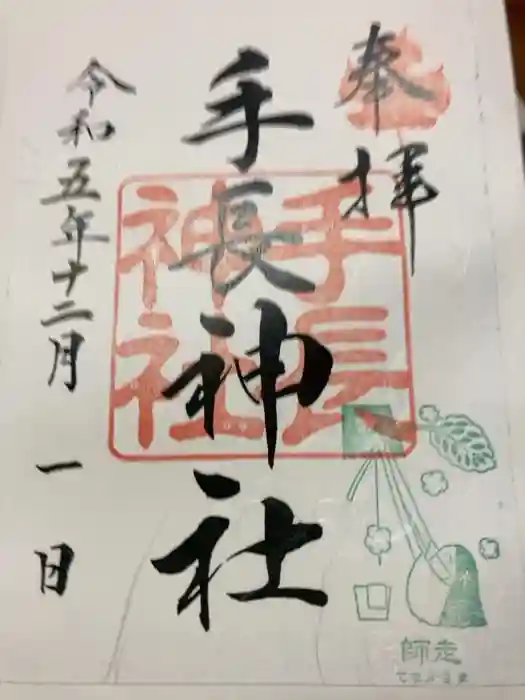 奉拝
手長神社
手長神社
令和五年十二月一日
師走